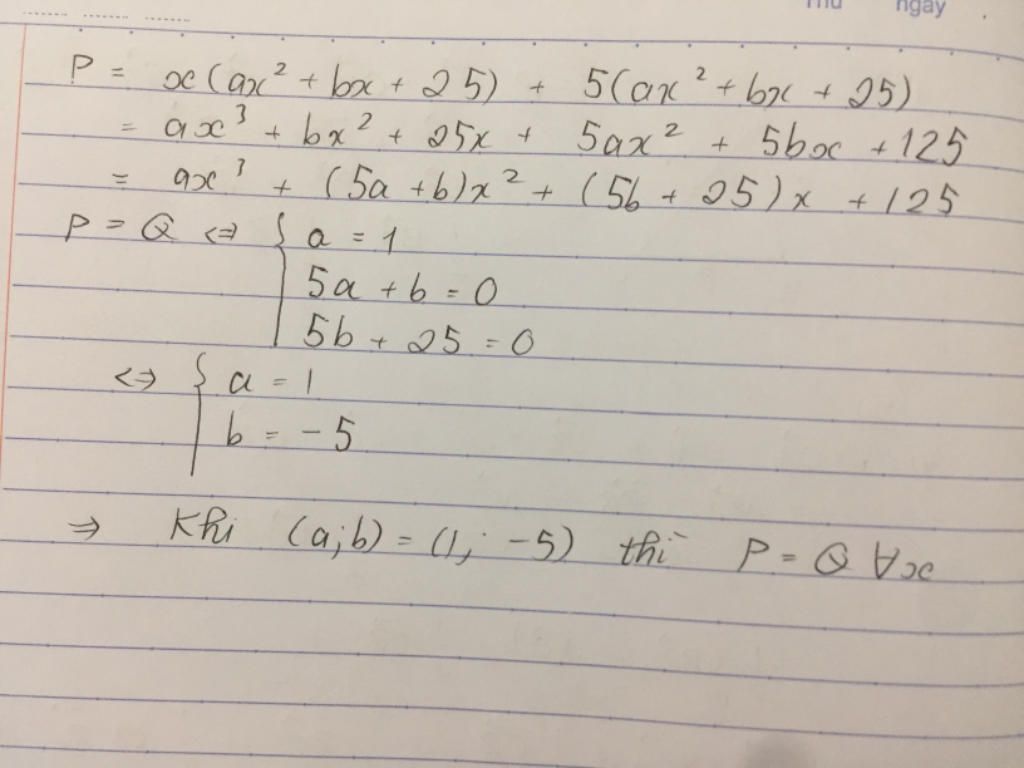 Thứ ngày
P = x(ax² + bx + 25) + 5(ax² + bx + 25)
= ax³ + bx² + 25x + 5ax² + 5bx + 125
= ax³ + (5a + b)x² + (5b + 25)x + 125
P = Q <=> { a = 1
5a + b = 0
5b + 25 = 0
<=> { a = 1
b = -5
=> Khi (a;b) = (1; -5) thì P = Q ∀x